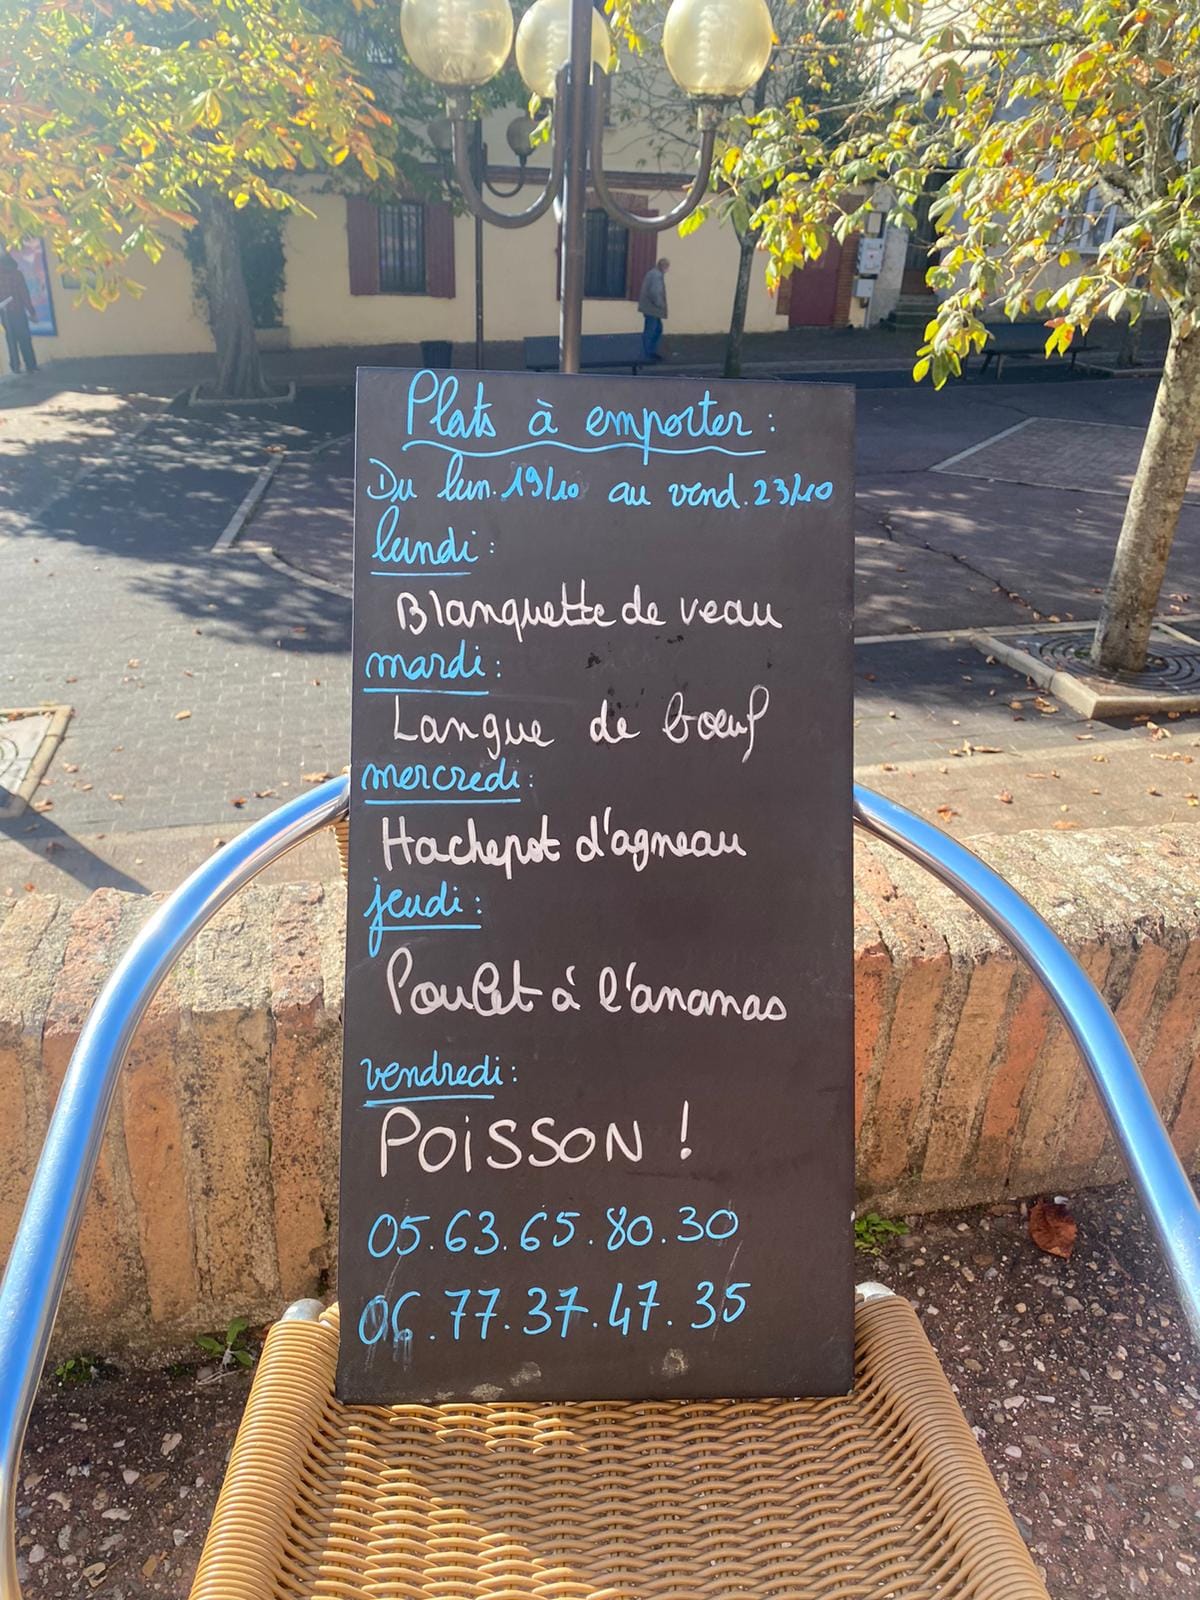 Plats à emporter :
Du lun. 19/10 au vend. 23/10
lundi :
Blanquette de veau
mardi :
Langue de bœuf
mercredi :
Hachepot d'agneau
jeudi :
Poulet à l'ananas
vendredi :
POISSON !
05.63.65.80.30
06.77.37.47.35